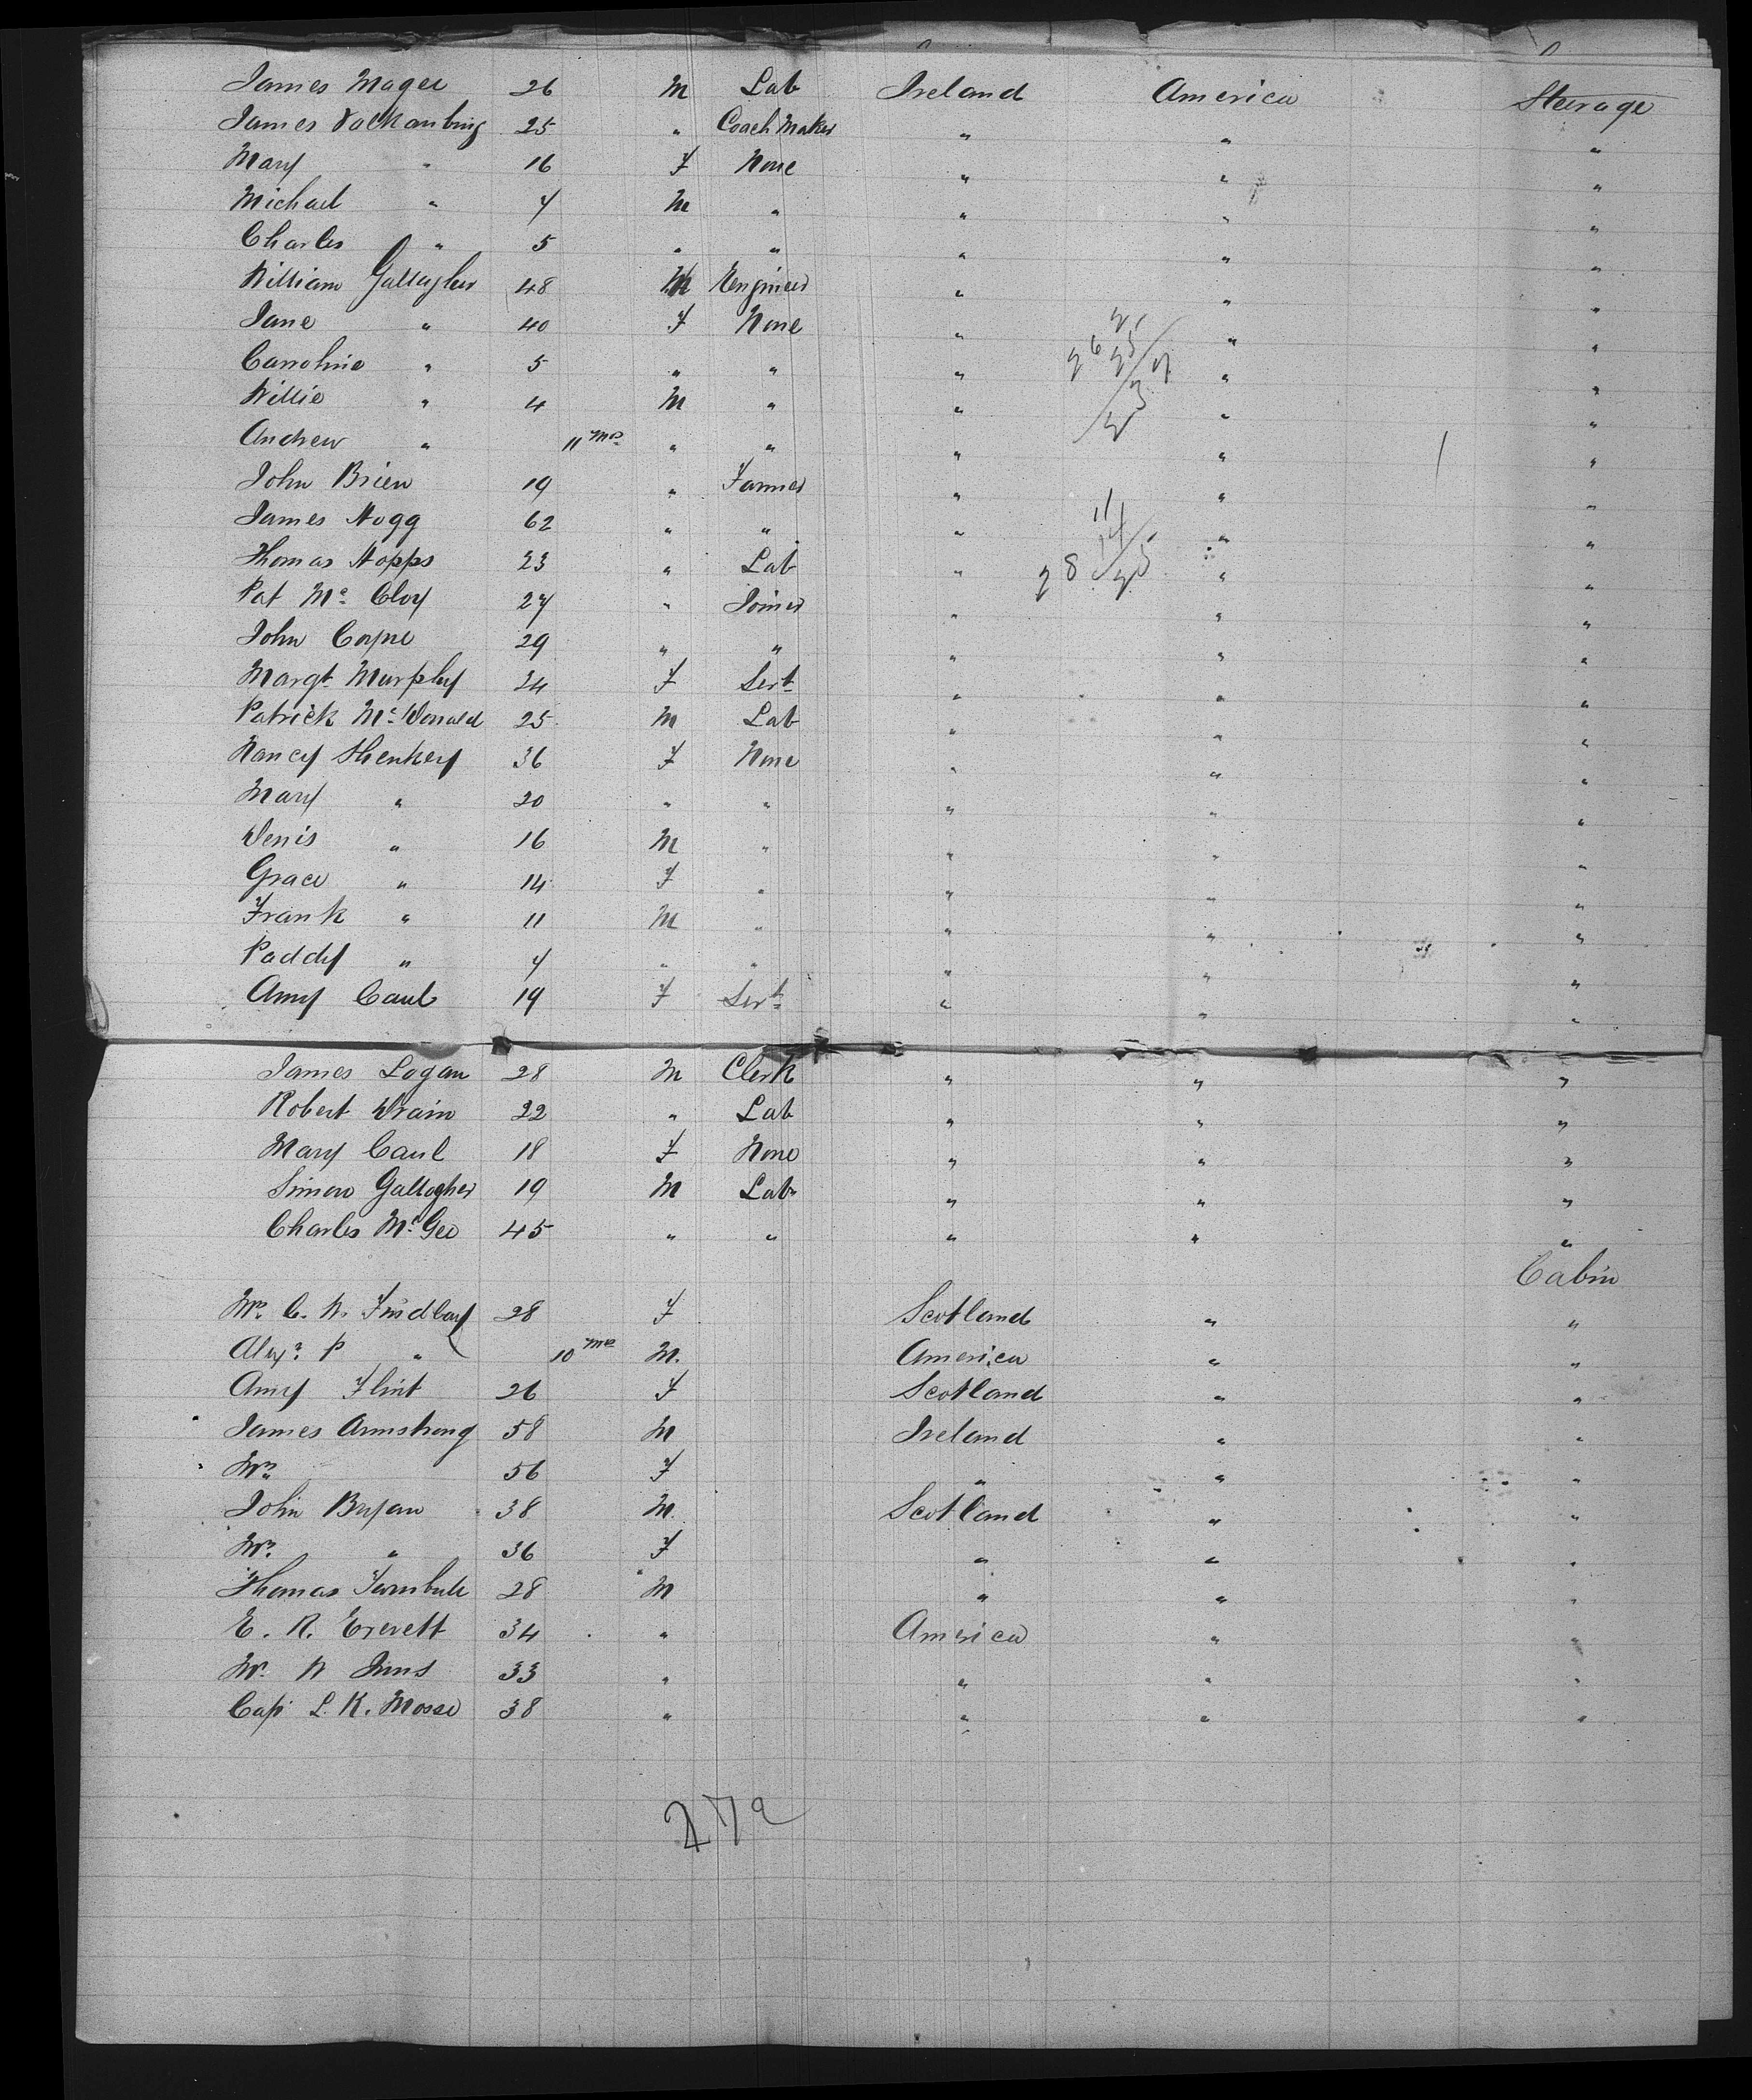 James Magee 26 M Lab Ireland America Steerage
James 25 " Coach Maker " " "
Mary " 16 F None " " "
Michael " 7 M " " " "
Charles " 5 " " " " "
William Gallagher 48 M Engineer " " "
Jane " 40 F None " " "
Carroline " 5 " " " " "
Willie " 4 M " " " "
Andrew " 11 mos " " " " "
John Brien 19 " Farmer " " "
James Hogg 62 " " " " "
Thomas Hopps 23 " Lab " " "
Pat Mc Cloy 27 " Joiner " " "
John Coyne 29 " " " " "
Margt Murphy 24 F Sert " " "
Patrick Mc Donald 25 M Lab " " "
Nancy Shenkey 36 F None " " "
Mary " 20 " " " " "
Denis " 16 M " " " "
Grace " 14 F " " " "
Frank " 11 M " " " "
Paddy " 7 " " " " "
Amy Caul 19 F Sert " " "
James Logan 28 M Clerk " " "
Robert Drain 22 " Lab " " "
Mary Caul 18 F None " " "
Simon Gallagher 19 M Lab " " "
Charles Mc Gee 45 " " " " "
Cabin
Mrs C. W. Findlay 28 F Scotland " "
Alexr P " 10 mos M. America " "
Amy Flint 26 F Scotland " "
James Armstrong 58 M Ireland " "
Mrs " 56 F " " "
John Bryan 38 M. Scotland " "
Mrs " 36 F " " "
Thomas Turnbull 28 M " " "
E. R. Everett 34 " America " "
Mr W 33 " " " "
Cap L. K. Morse 38 " " " "
272